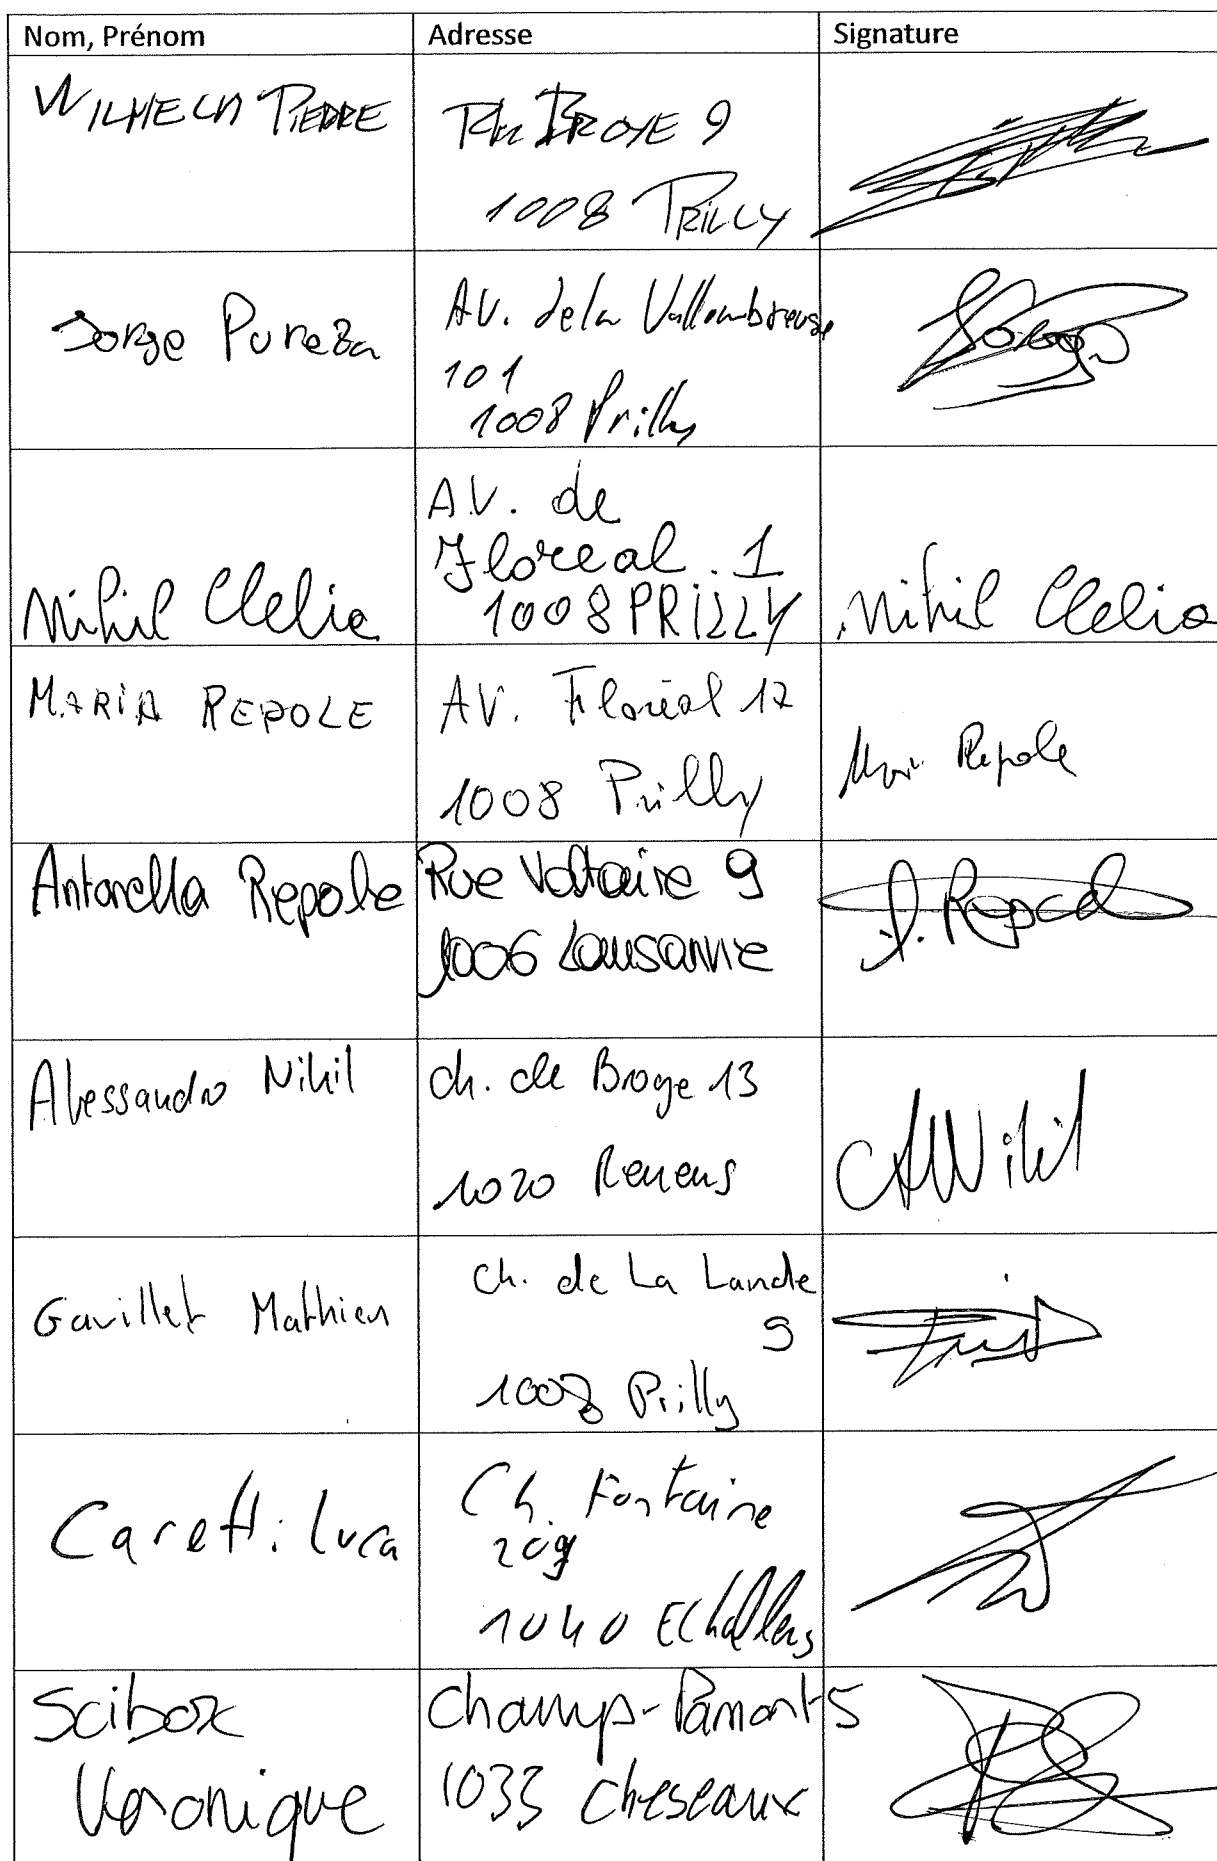 Nom, Prénom Adresse Signature
WILHELM PIERRE
BROYE 9
1008 PRILLY
Jorge Pureza
AV. de la Vallombreuse
101
1008 Prilly
Nihil Clelia
AV. de
Floreal . 1
1008 PRILLY
Nihil Clelia
MARIA REPOLE
AV. Floréal 17
1008 Prilly
Repole
Antonella Repole
Rue Voltaire 9
1006 Lausanne
A. Repole
Alessandro Nihil
Ch. de Broye 13
1020 Renens
A Nihil
Gavillet Mathieu
Ch. de La Lande
9
1008 Prilly
Caretti Luca
Ch. Fontaine
1040 Echallens
Sciboz
Véronique
Champ-Pamont 5
1033 Cheseaux